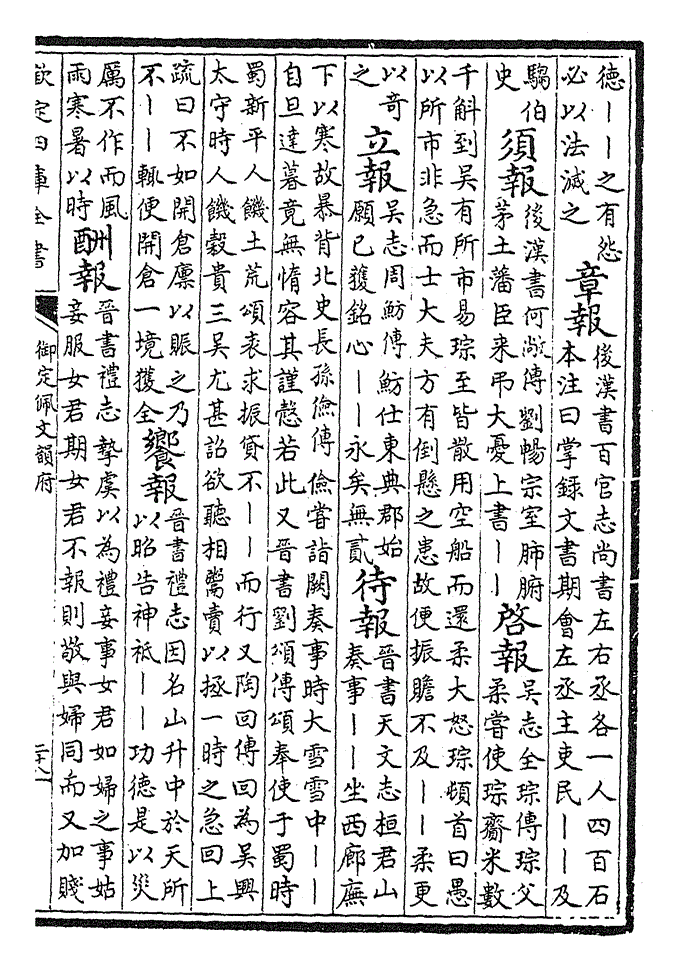 德丨丨之有怨
必以法滅之
章報
後漢書百官志尚書左右丞各一人四百石
本注曰掌録文書期會左丞主吏民丨丨及
騶伯
史
須報
後漢書何敞傳劉暢宗室肺腑
茅土藩臣来弔大憂上書丨丨
啓報
吳志全琮傳琮父
柔嘗使琮齎米數
千斛到吳有所市易琮至皆散用空船而還柔大怒琮頓首曰愚
以所市非急而士大夫方有倒懸之患故便振贍不及丨丨柔更
以奇
之
立報
吳志周魴傳魴仕東典郡始
願已獲銘心丨丨永矣無貳
待報
晉書天文志桓君山
奏事丨丨坐西廊廡
下以寒故暴背北史長孫儉傳儉嘗詣闕奏事時大雪雪中丨丨
自旦達暮竟無惰容其謹慤若此又晉書劉頌傳頌奉使于蜀時
蜀新平人饑土荒頌表求振貸不丨丨而行又陶回傳回為吳興
太守時人饑穀貴三吳尤甚詔欲聽相鬻賣以拯一時之急回上
疏曰不如開倉廩以賑之乃
不丨丨輒便開倉一境獲全
饗報
晉書禮志因名山升中於天所
以昭告神祇丨丨功德是以災
厲不作而風
雨寒暑以時
酬報
晉書禮志摯虞以為禮妾事女君如婦之事姑
妾服女君期女君不報則敬與婦同而又加賤
欽定四庫全書
御定佩文韻府
二十八